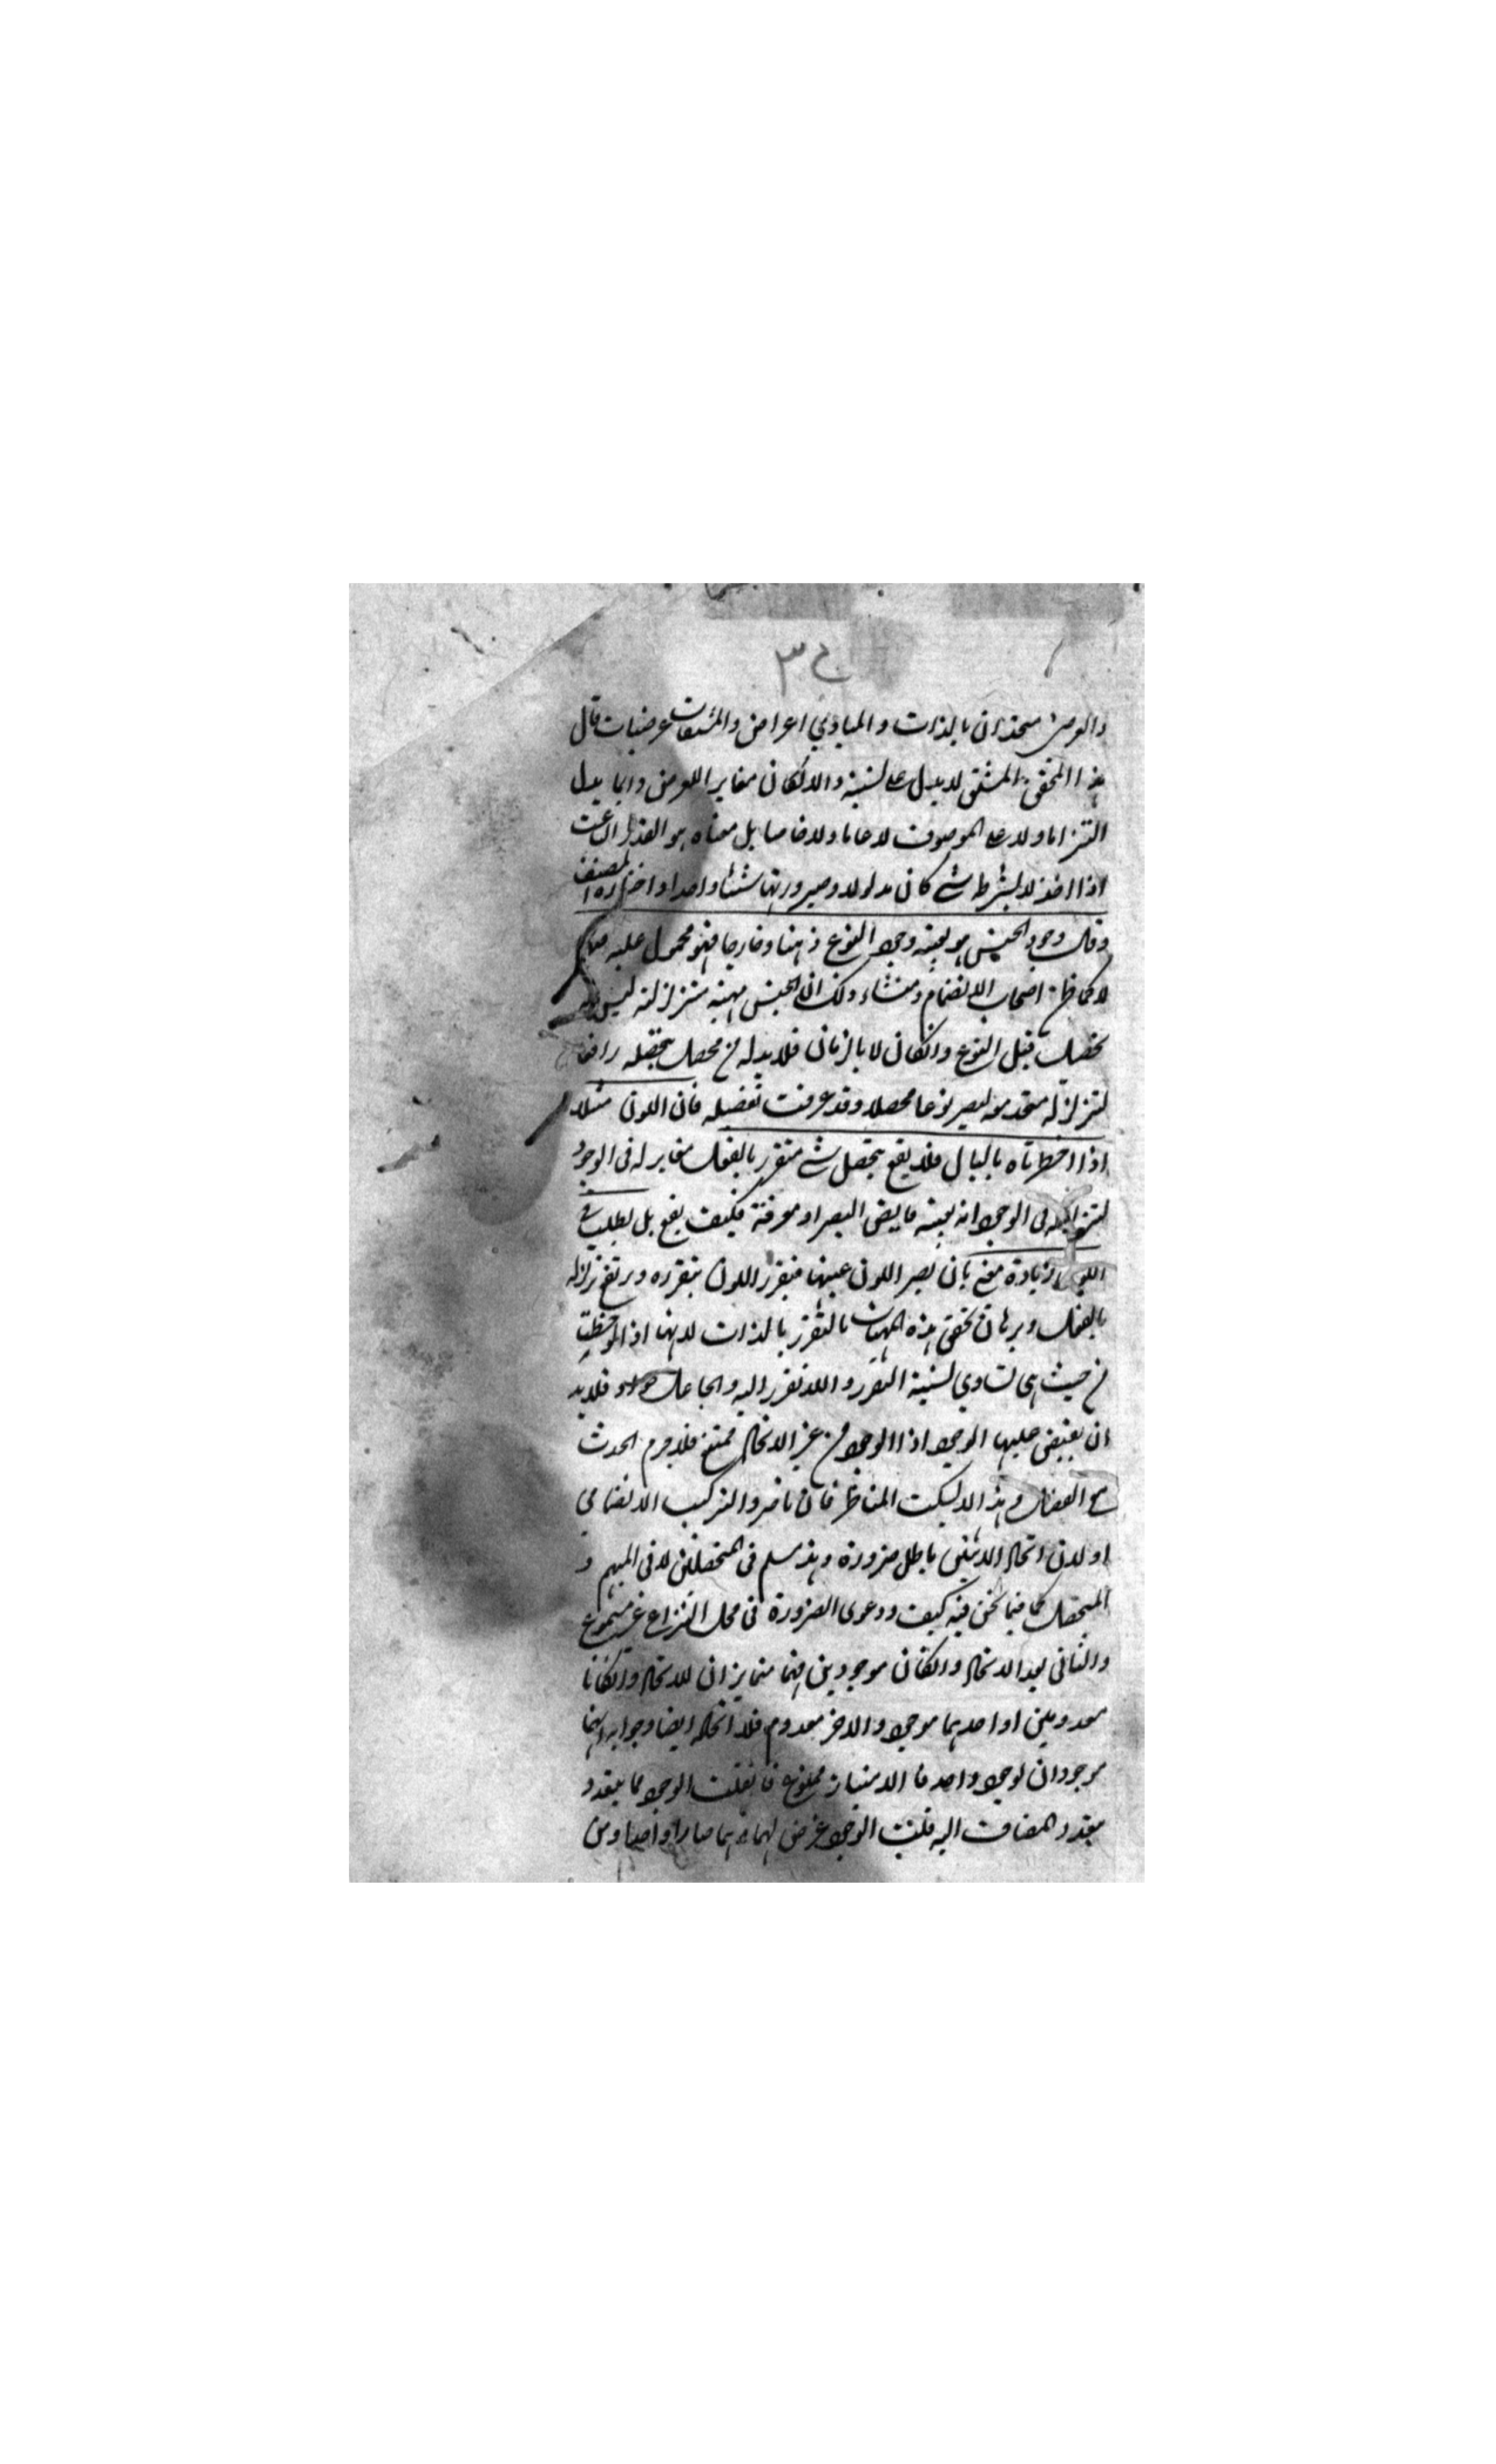 والعرض متحدان بالذات والمبادي اعراض والمشتقات عرضيات قال
هذا المحقق المشتق لا يدل على النسبة والا لكان مغايرا للعرض وانما يدل
التزاما ولا على الموصوف لا عاما ولا خاصا بل معناه هو القدر الناعت
اذا اخذ لا بشرط شى كان مدلوله وصيرورتها شيئا واحدا واختاره المصنف
وقال وجود الجنس هو بعينه وجود النوع ذهنا وخارجا فهو محمول عليه
لا كما ظن اصحاب الانضمام ومنشاء ذلك ان الجنس مبهمة متزلزلة ليس له
تحصل قبل النوع وان كان لا بالزمان فلا بد له من محصل يتحصله رافعا
لتزلزله متحد معه ليصير نوعا محصلا وقد عرفت تفصيله فان اللون مثلا
اذا اخطرناه بالبال فلا يقنع بتحصل شى متقرر بالفعل مغاير له فى الوجود
فى الوجود انه بعينه قابض البصر او مفرقة فكيف يقنع بل يطلب فى
اللون زيادة معنى بان يصير اللون عينها فيتقرر اللون بتقرره ويرتفع تزلزله
بالفعل وبرهان تحقق هذه المهيات بالتقرر بالذات لانها اذا لوحظت
من حيث هى تساوي نسبة التقرر واللاتقرر اليه والجاعل فلا بد
ان يفيض عليها الوجود اذا الوجود من غير الاتحاد ممتنع فلا جرم اتحدت
مع الفصل وهذا لا يسكت المناظر فان ناصروا التركيب الانضمامي
اولا ان اتحاد الاثنين باطل ضرورة وهذا مسلم فى المتحصلين لا فى المبهم و
المتحصل كما فيما نحن فيه كيف ودعوى الضرورة فى محل النزاع غير مسموع
والثانى بعد الاتحاد ان كانا موجودين فهما متمايزان فلا اتحاد وان كانا
معدومين او احدهما موجود والاخر معدوم فلا اتحاد ايضا وجوابه انهما
موجودان لوجود واحد فالامتياز ممنوع فان قلت الوجود مما يتعدد
بتعدد المضاف اليه قلت الوجود عرض لهما صارا واحدا ومن